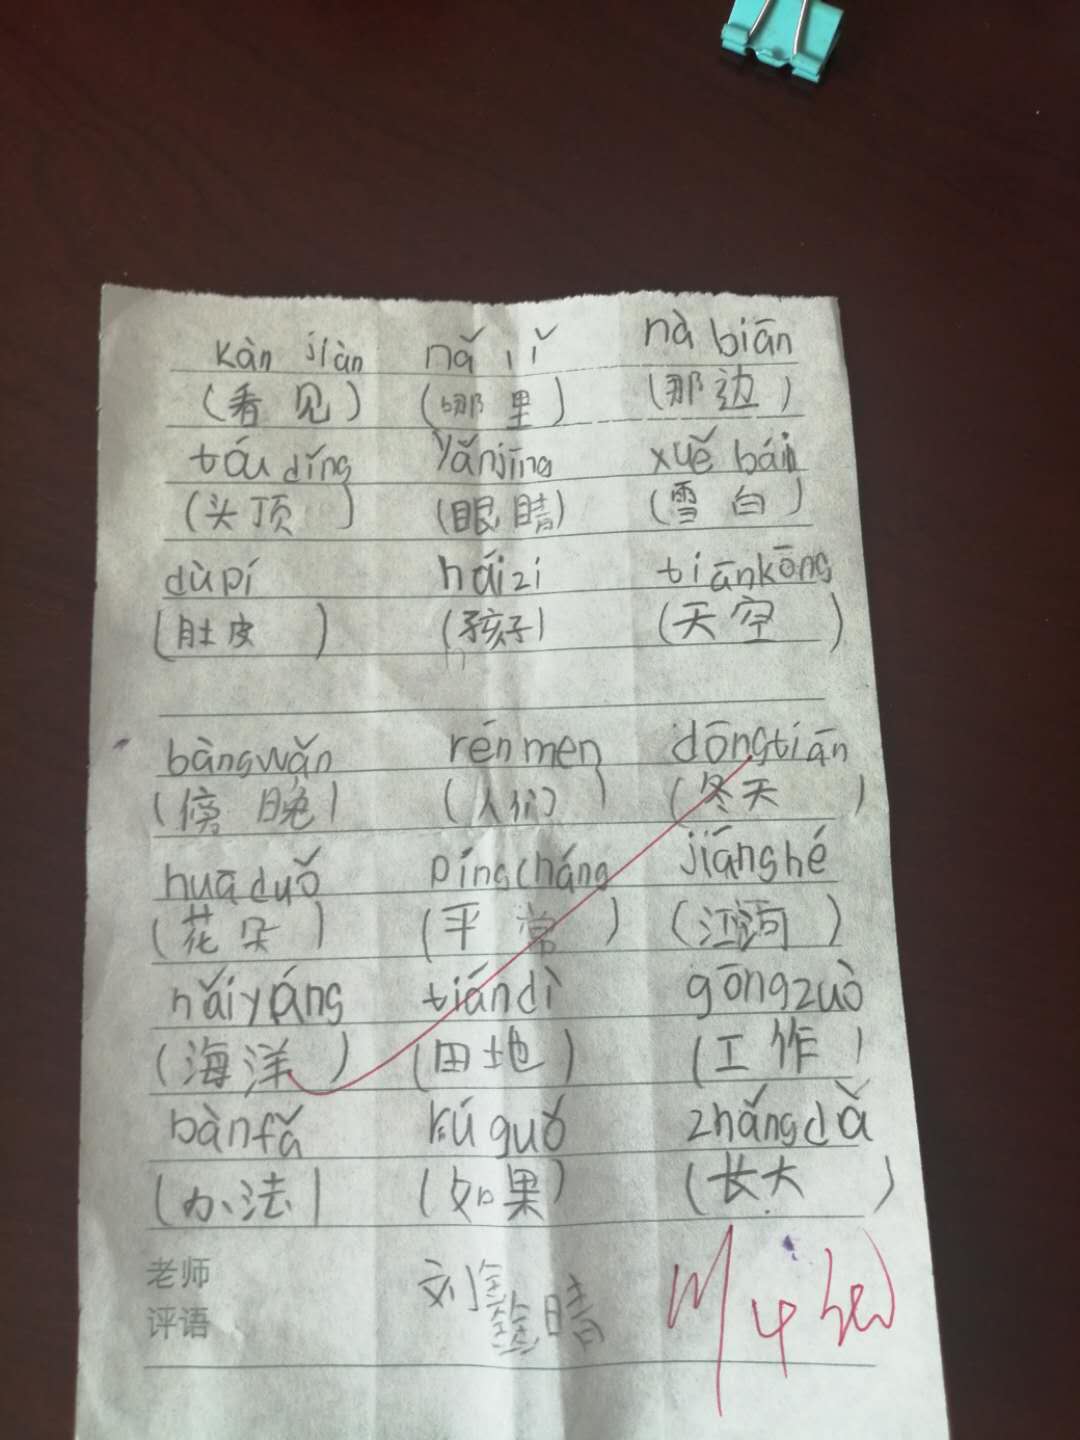 kàn jiàn nǎ lǐ nà biān
(看见) (哪里) (那边)
tóu dǐng yǎnjīng xuě bái
(头顶) (眼睛) (雪白)
dùpí háizi tiānkōng
(肚皮) (孩子) (天空)
bàngwǎn rénmen dōngtiān
(傍晚) (人们) (冬天)
huāduǒ píngcháng jiānghé
(花朵) (平常) (江河)
hǎiyáng tiándì gōngzuò
(海洋) (田地) (工作)
bànfǎ rúguǒ zhǎngdǎ
(办法) (如果) (长大)
老师 刘鑫晴
评语